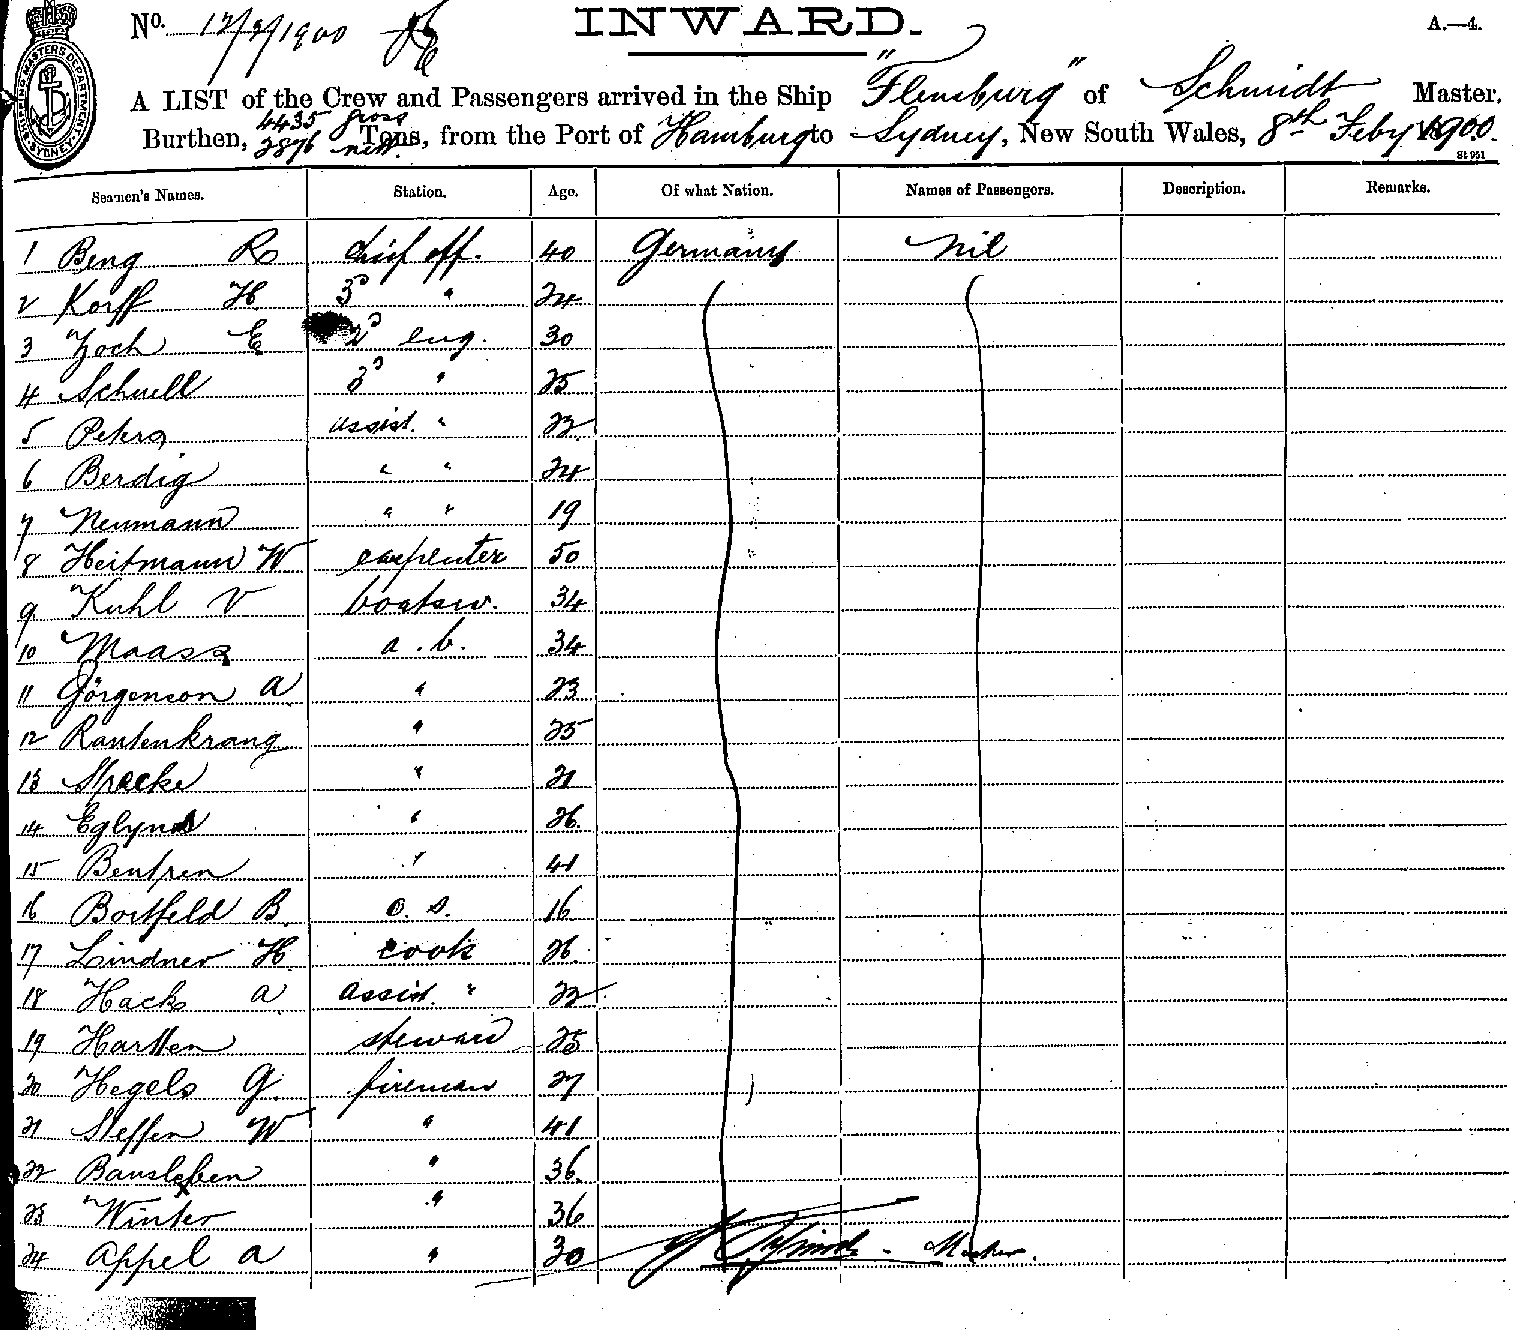 No. 12/2/1900
INWARD.
A.—4.
SHIPPING MASTERS DEPARTMENT SYDNEY
A LIST of the Crew and Passengers arrived in the Ship "Flensburg" of Schmidt Master,
Burthen, 4435 gross 2876 nett. Tons, from the Port of Hamburg to Sydney, New South Wales, 8th Feby 1900.
St 951
Seamen's Names. Station. Age. Of what Nation. Names of Passengers. Description. Remarks.
1 Beng R chief off. 40 Germany Nil
2 Korff H 3d " 24
3 Zoch E 2d eng. 30
4 Schnell 3d " 25
5 Peters assist. " 22
6 Berdig " " 24
7 Neumann " " 19
8 Heitmann W carpenter 50
9 Kuhl V boatsw. 34
10 Maass a.b. 34
11 Jörgenson A " 23
12 Rautenkranz " 25
13 Specke " 21
14 Eglynd " 26
15 Bentren " 41
16 Bortfeld B. o.s. 16
17 Lindner H cook 26
18 Hack A assist. " 22
19 Hartten steward 25
20 Hegels G. fireman 27
21 Steffen W " 41
22 Bansleben " 36
23 Winter " 36
24 Appel A " 30
Master.